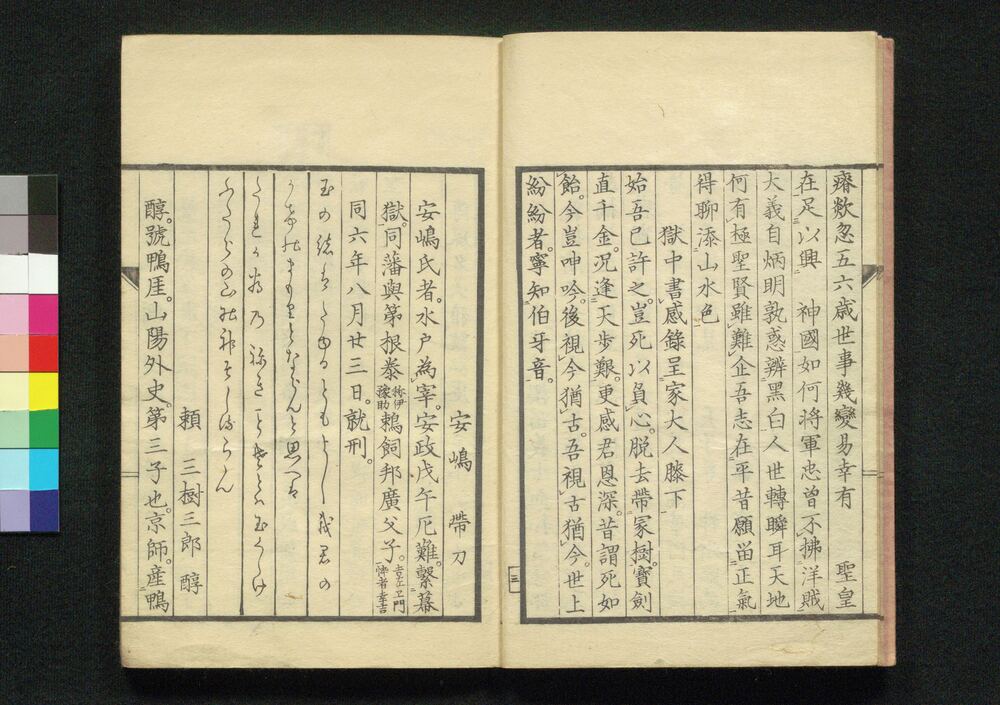 瘠欬忽五六歳世事幾變易幸有　聖皇
在足以興　神國如何將軍忠曽不拂洋賊
大義自炳明孰惑辨黑白人世轉瞬耳天地
何有極聖賢雖難企吾志在平昔願畄正氣
得聊添山水色
獄中書感錄呈家大人膝下
始吾已許之豈死以負心脱去帶冢樹寶劍
直千金況逢天歩艱更感君恩深昔謂死如
飴今豈呻吟後視今猶古吾視古猶今世上
紛紛者寧知伯牙音
三
安嶋　帶刀
安嶋氏者水戸為宰安政戊午厄難繫幕
獄同藩與苐根𣳾称伊豫助鵜飼邦廣父子吉左ヱ門忰者幸吉
同六年八月廿三日就刑
玉の緒はたゆるともよし我君の
と思へは
頼　三樹三郎　醇
醇號鴨厓山陽外史第三子也京師産鴨